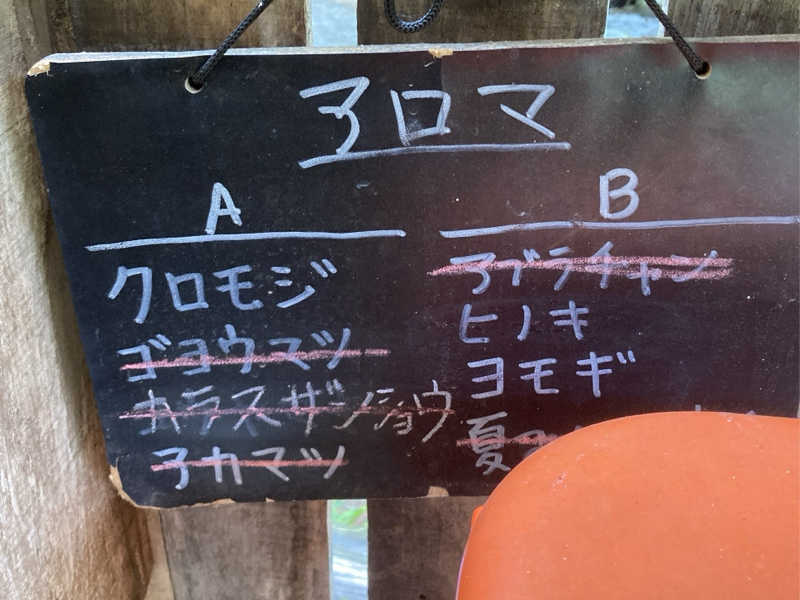 アロマ
A
クロモジ
ゴヨウマツ
カラスザンショウ
アカマツ
B
アブラチャン
ヒノキ
ヨモギ
夏